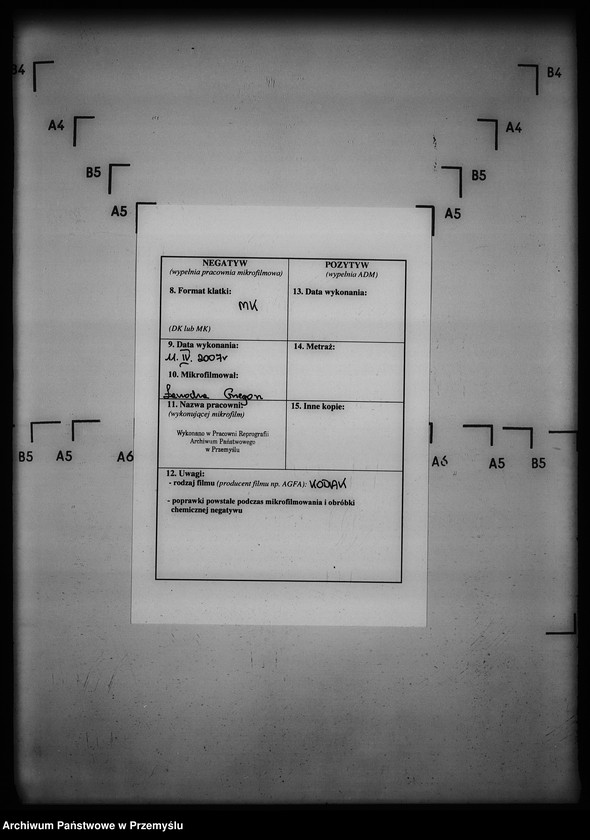 B4
B4
A4
A4
B5
B5
A5
A5
NEGATYW
(wypełnia pracownia mikrofilmowa)
POZYTYW
(wypełnia ADM)
8. Format klatki:
MK
(DK lub MK)
13. Data wykonania:
9. Data wykonania:
11. IV. 2007r
14. Metraż:
10. Mikrofilmował:
11. Nazwa pracowni:
(wykonującej mikrofilm)
15. Inne kopie:
Wykonano w Pracowni Reprografii
Archiwum Państwowego
w Przemyślu
B5 A5 A6
A6 A5 B5
12. Uwagi:
- rodzaj filmu (producent filmu np. AGFA): KODAK
- poprawki powstałe podczas mikrofilmowania i obróbki
chemicznej negatywu
Archiwum Państwowe w Przemyślu